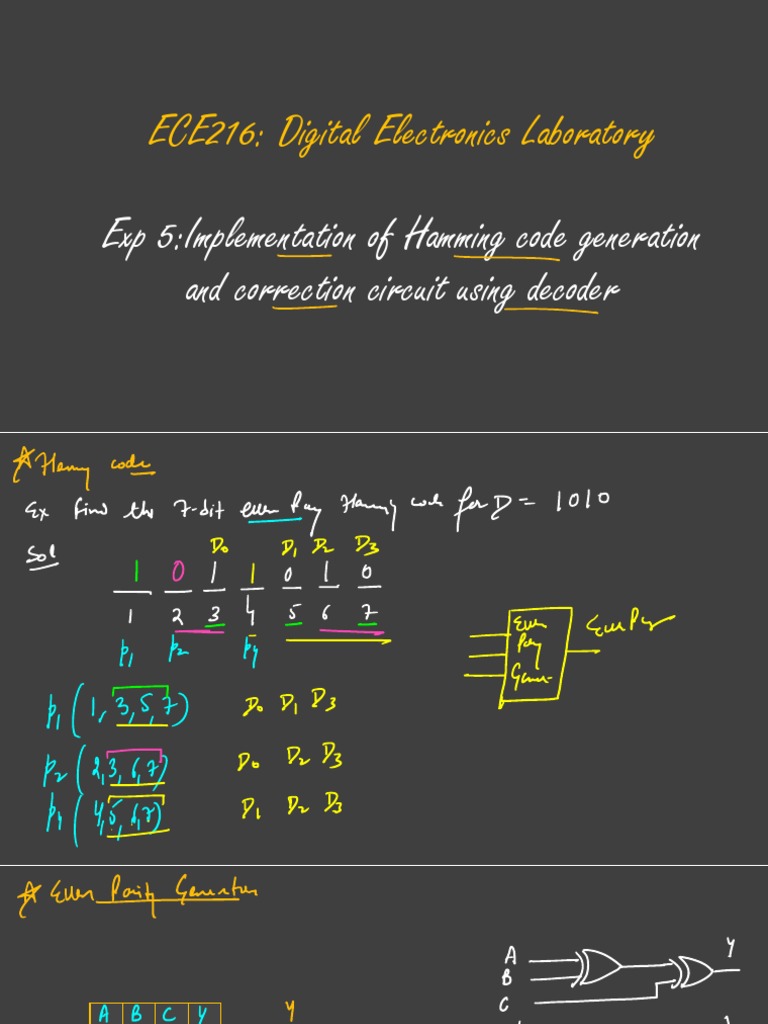 ECE216: Digital Electronics Laboratory
Exp 5:Implementation of Hamming code generation
and correction circuit using decoder
code
Ex Find the 7-dit even Hamming code for D = 1010
Sol
D0 D1 D2 D3
1 0 1 1 0 1 0
1 2 3 4 5 6 7
P1 P2 P4
P1 (1, 3, 5, 7) D0 D1 D3
P2 (2, 3, 6, 7) D0 D2 D3
P4 (4, 5, 6, 7) D1 D2 D3
Even
Even Parity Generator
A
B
C
Y
A B C Y
Y